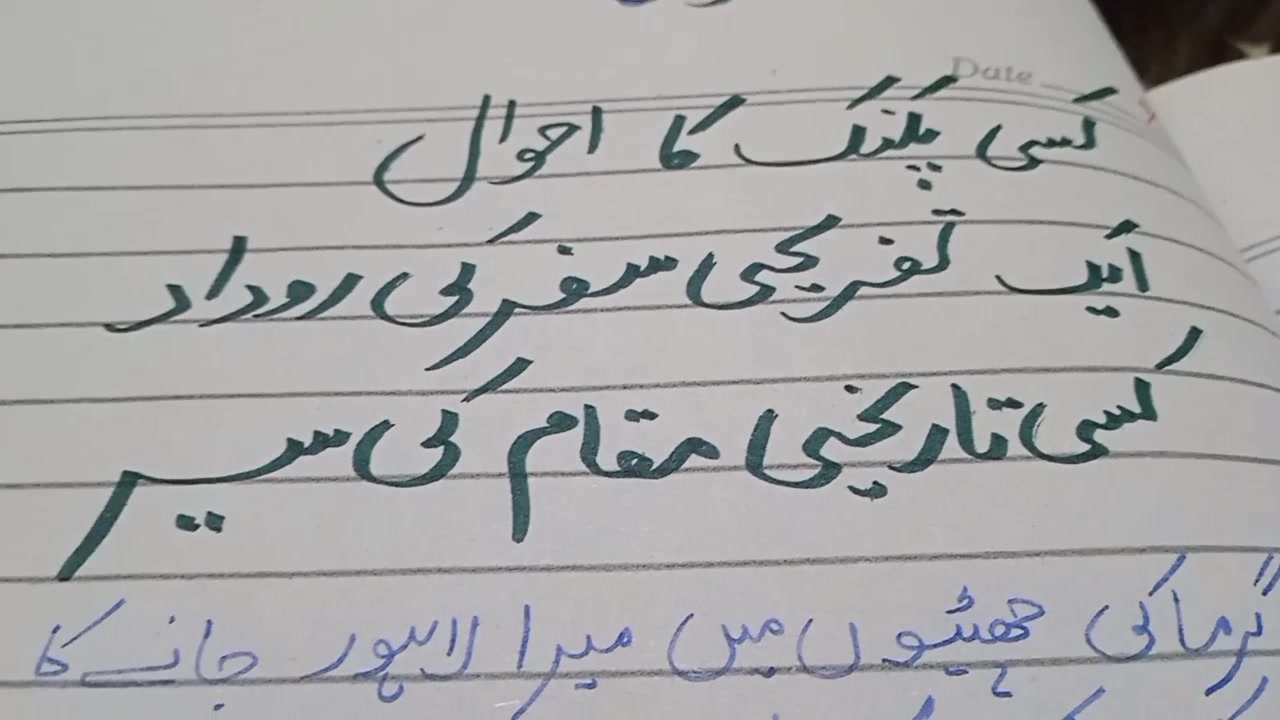 Date
کسی پکنک کا احوال
ایک تفریحی سفر کی روداد
کسی تاریخی مقام کی سیر
گرما کی چھٹیوں میں میرا لاہور جانے کا